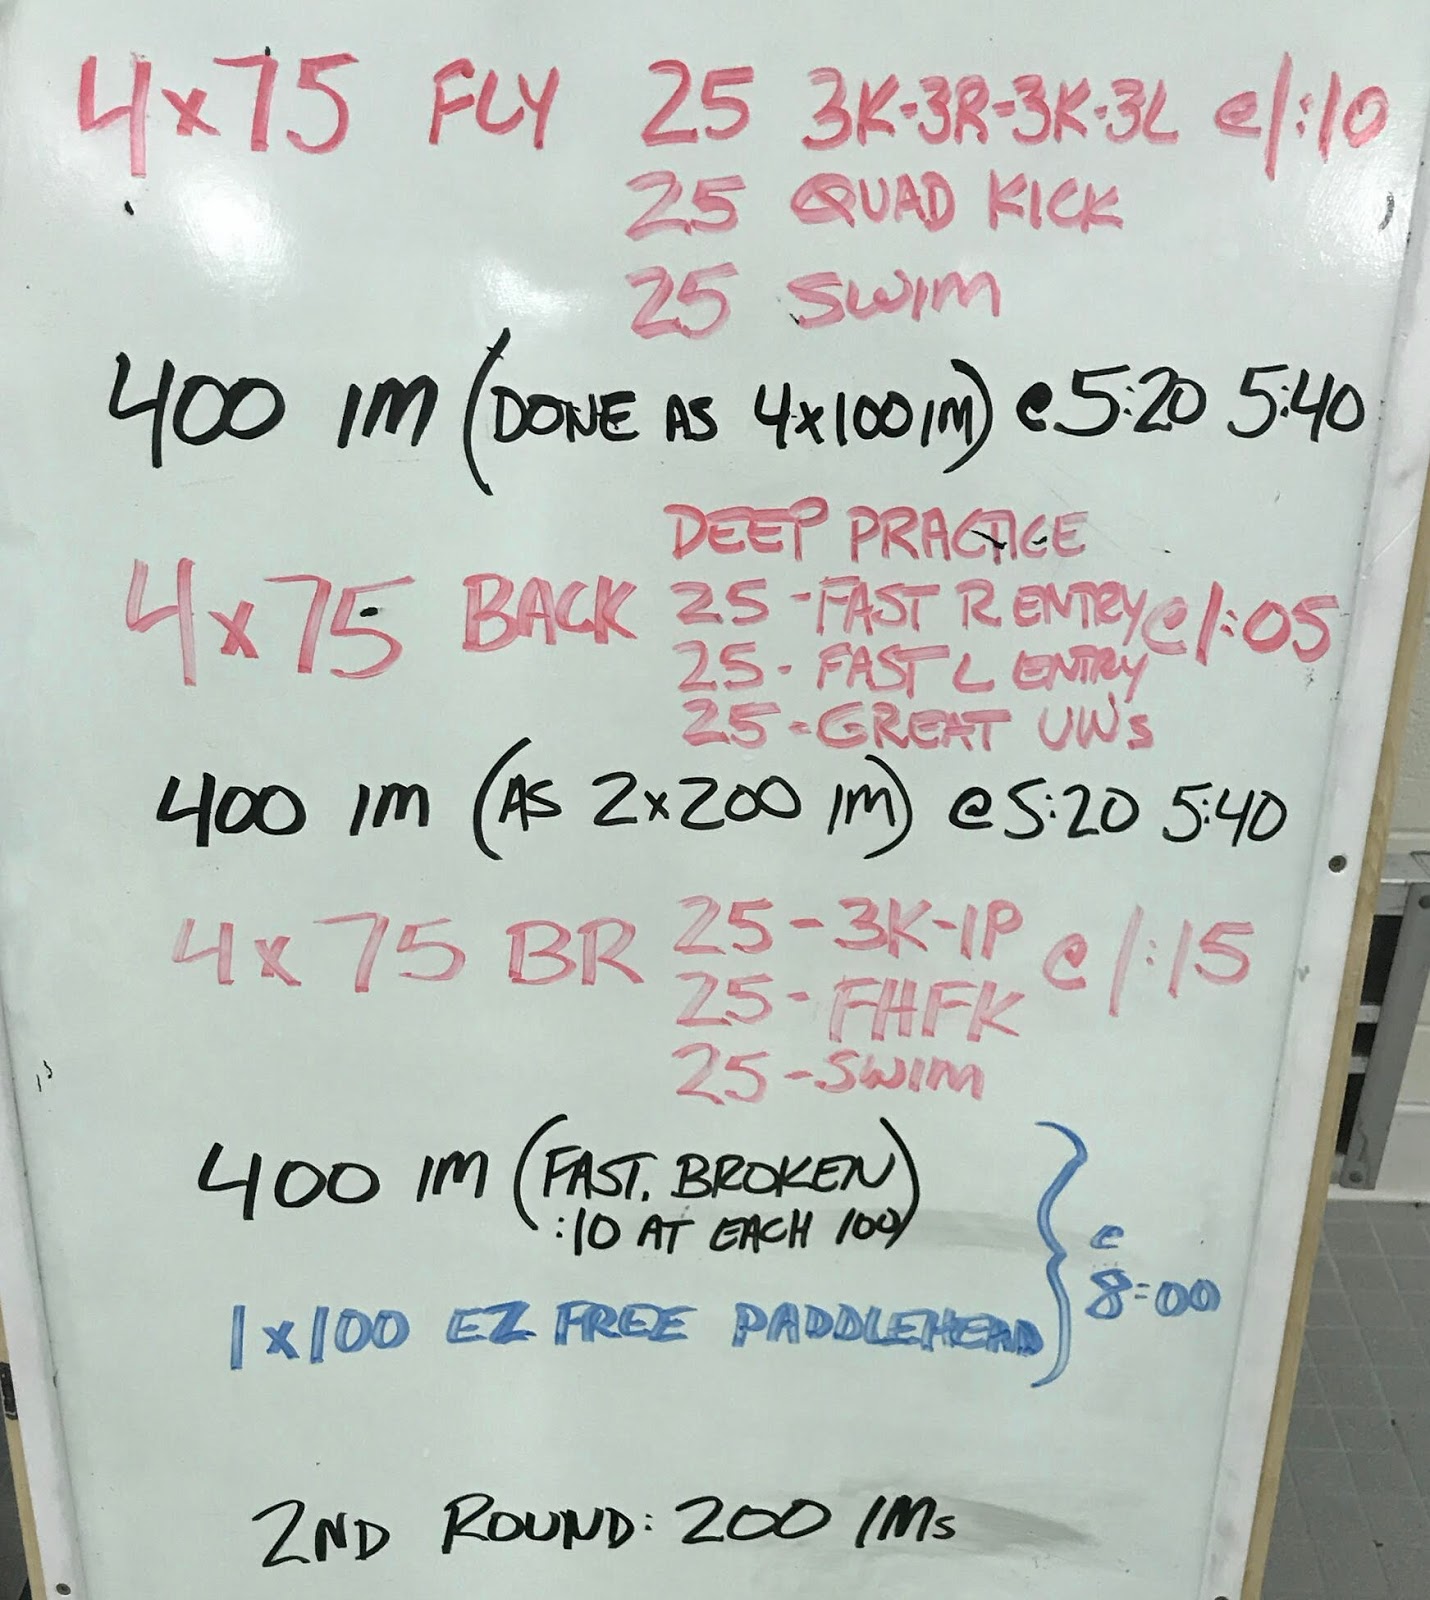 4x75 FLY 25 3K-3R-3K-3L @1:10
25 QUAD KICK
25 SWIM
400 IM (DONE AS 4x100 IM) @ 5:20 5:40
DEEP PRACTICE
4x75 BACK 25 - FAST R ENTRY @1:05
25 - FAST L ENTRY
25 - GREAT UWs
400 IM (AS 2x200 IM) @ 5:20 5:40
4x75 BR 25 - 3K-1P @ 1:15
25 - FHFK
25 - SWIM
400 IM (FAST, BROKEN
:10 AT EACH 100)
@ 8:00
1x100 EZ FREE PADDLEHEAD
2ND ROUND: 200 IMs